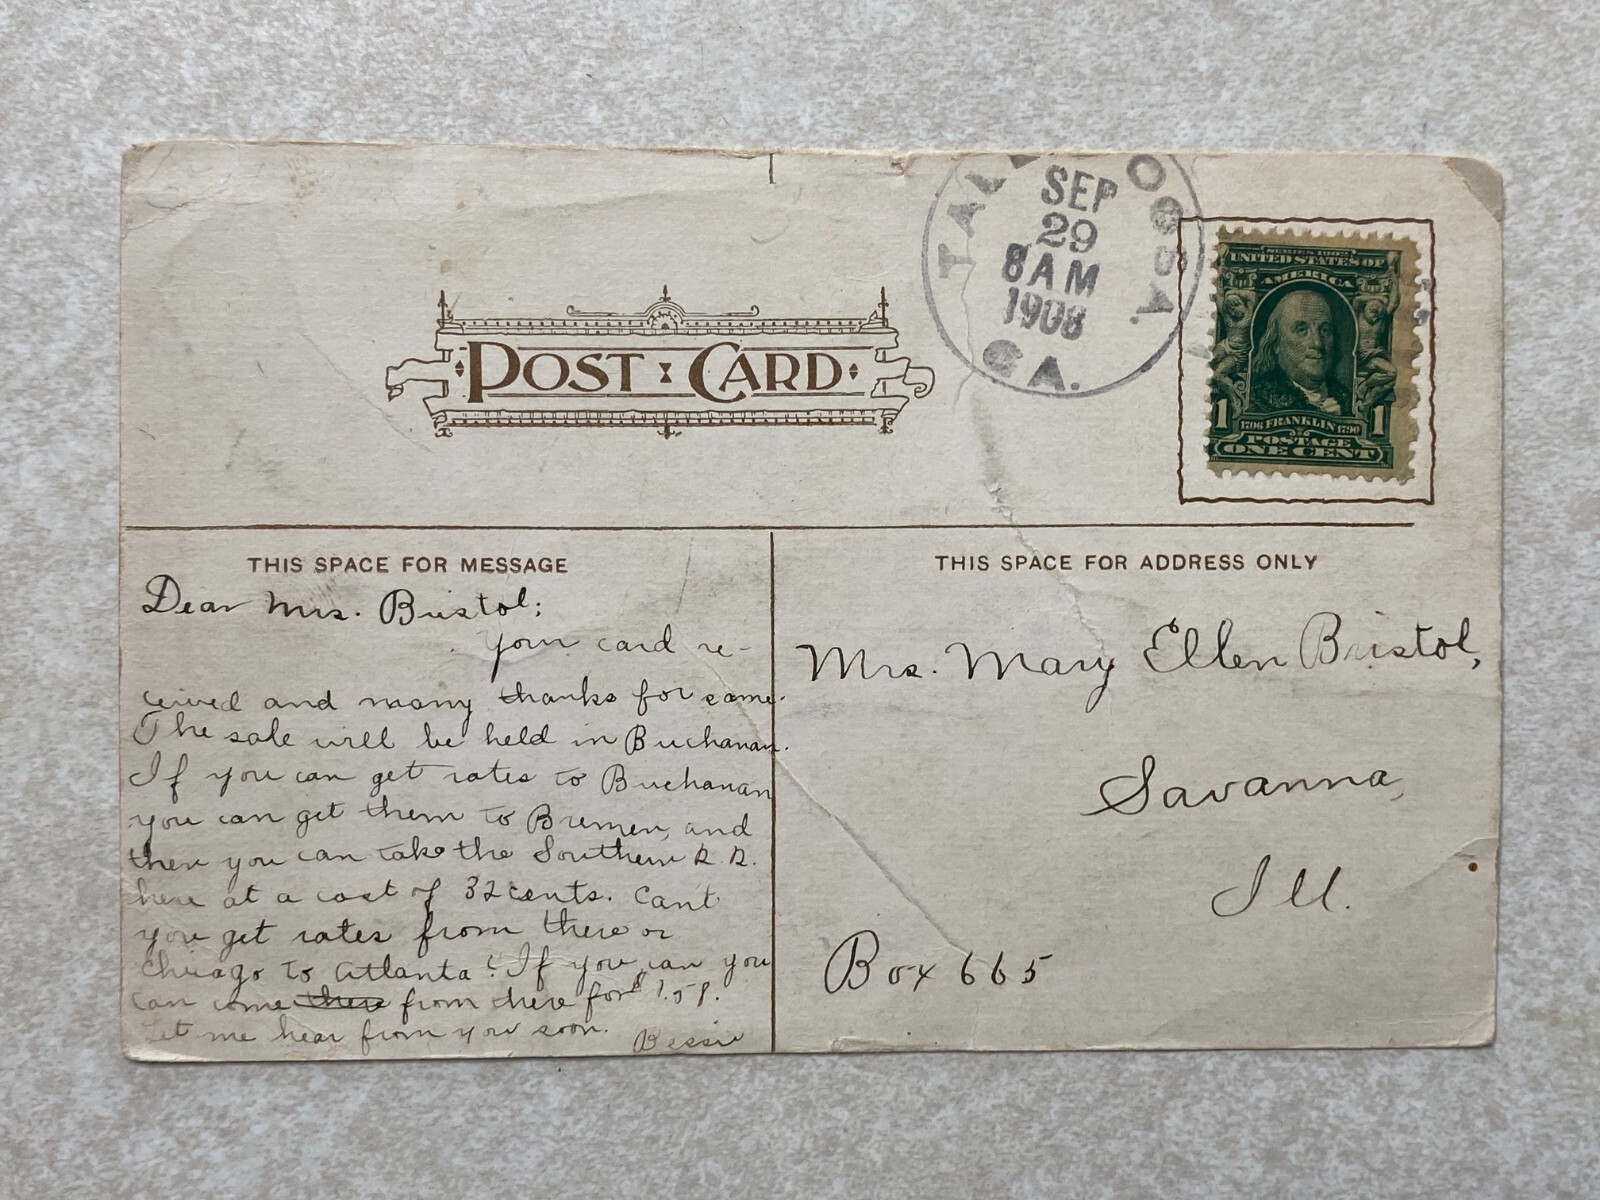 TALL OOSA, GA.
SEP
29
8 AM
1908
SERIES 1902
UNITED STATES OF
AMERICA
1 1706 FRANKLIN 1790 1
POSTAGE
ONE CENT
POST CARD
THIS SPACE FOR MESSAGE
Dear Mrs. Bristol;
Your card re-
ceived and many thanks for same.
The sale will be held in Buchanan.
If you can get rates to Buchanan
you can get them to Bremen, and
then you can take the Southern R. R.
here at a cost of 32 cents. Can't
you get rates from there or
Chicago to Atlanta? If you can you
can come there from there for $1.59.
Let me hear from you soon.
Bessie
THIS SPACE FOR ADDRESS ONLY
Mrs. Mary Ellen Bristol,
Savanna,
Ill.
Box 665